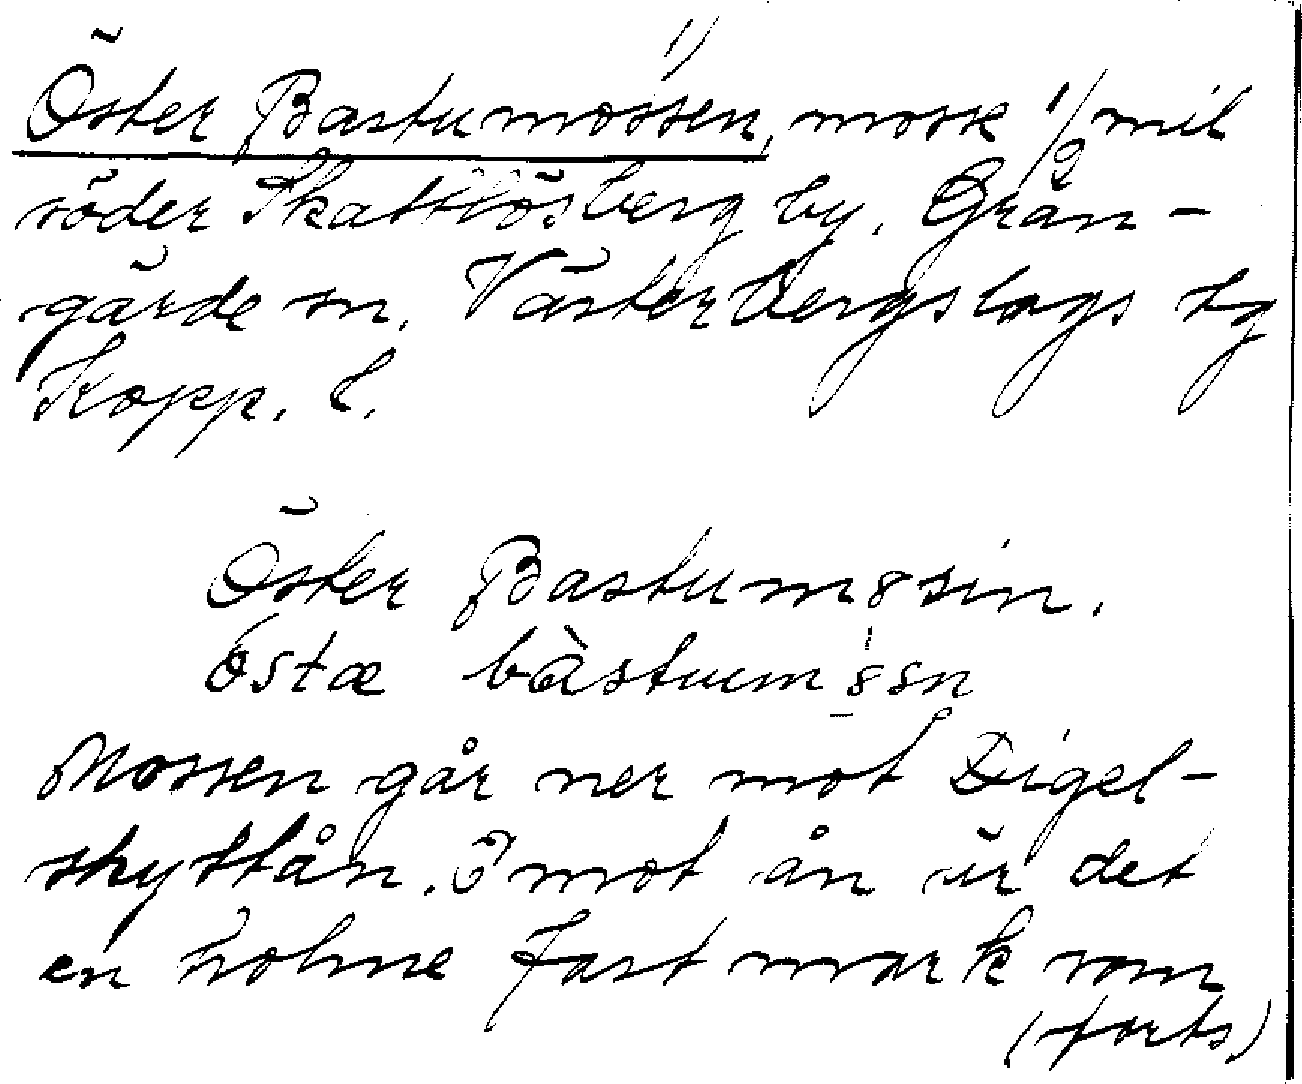 1)
Öster Bastumossen, mosse 1/2 mil
söder Skattlösberg by. Grän-
gärde sn. Västerbergslags tg
Kopp. l.
Öster Bastumåsin.
mossen går ner mot Digel-
skyttån. Imot ån är det
en holme fast mark som
(forts)